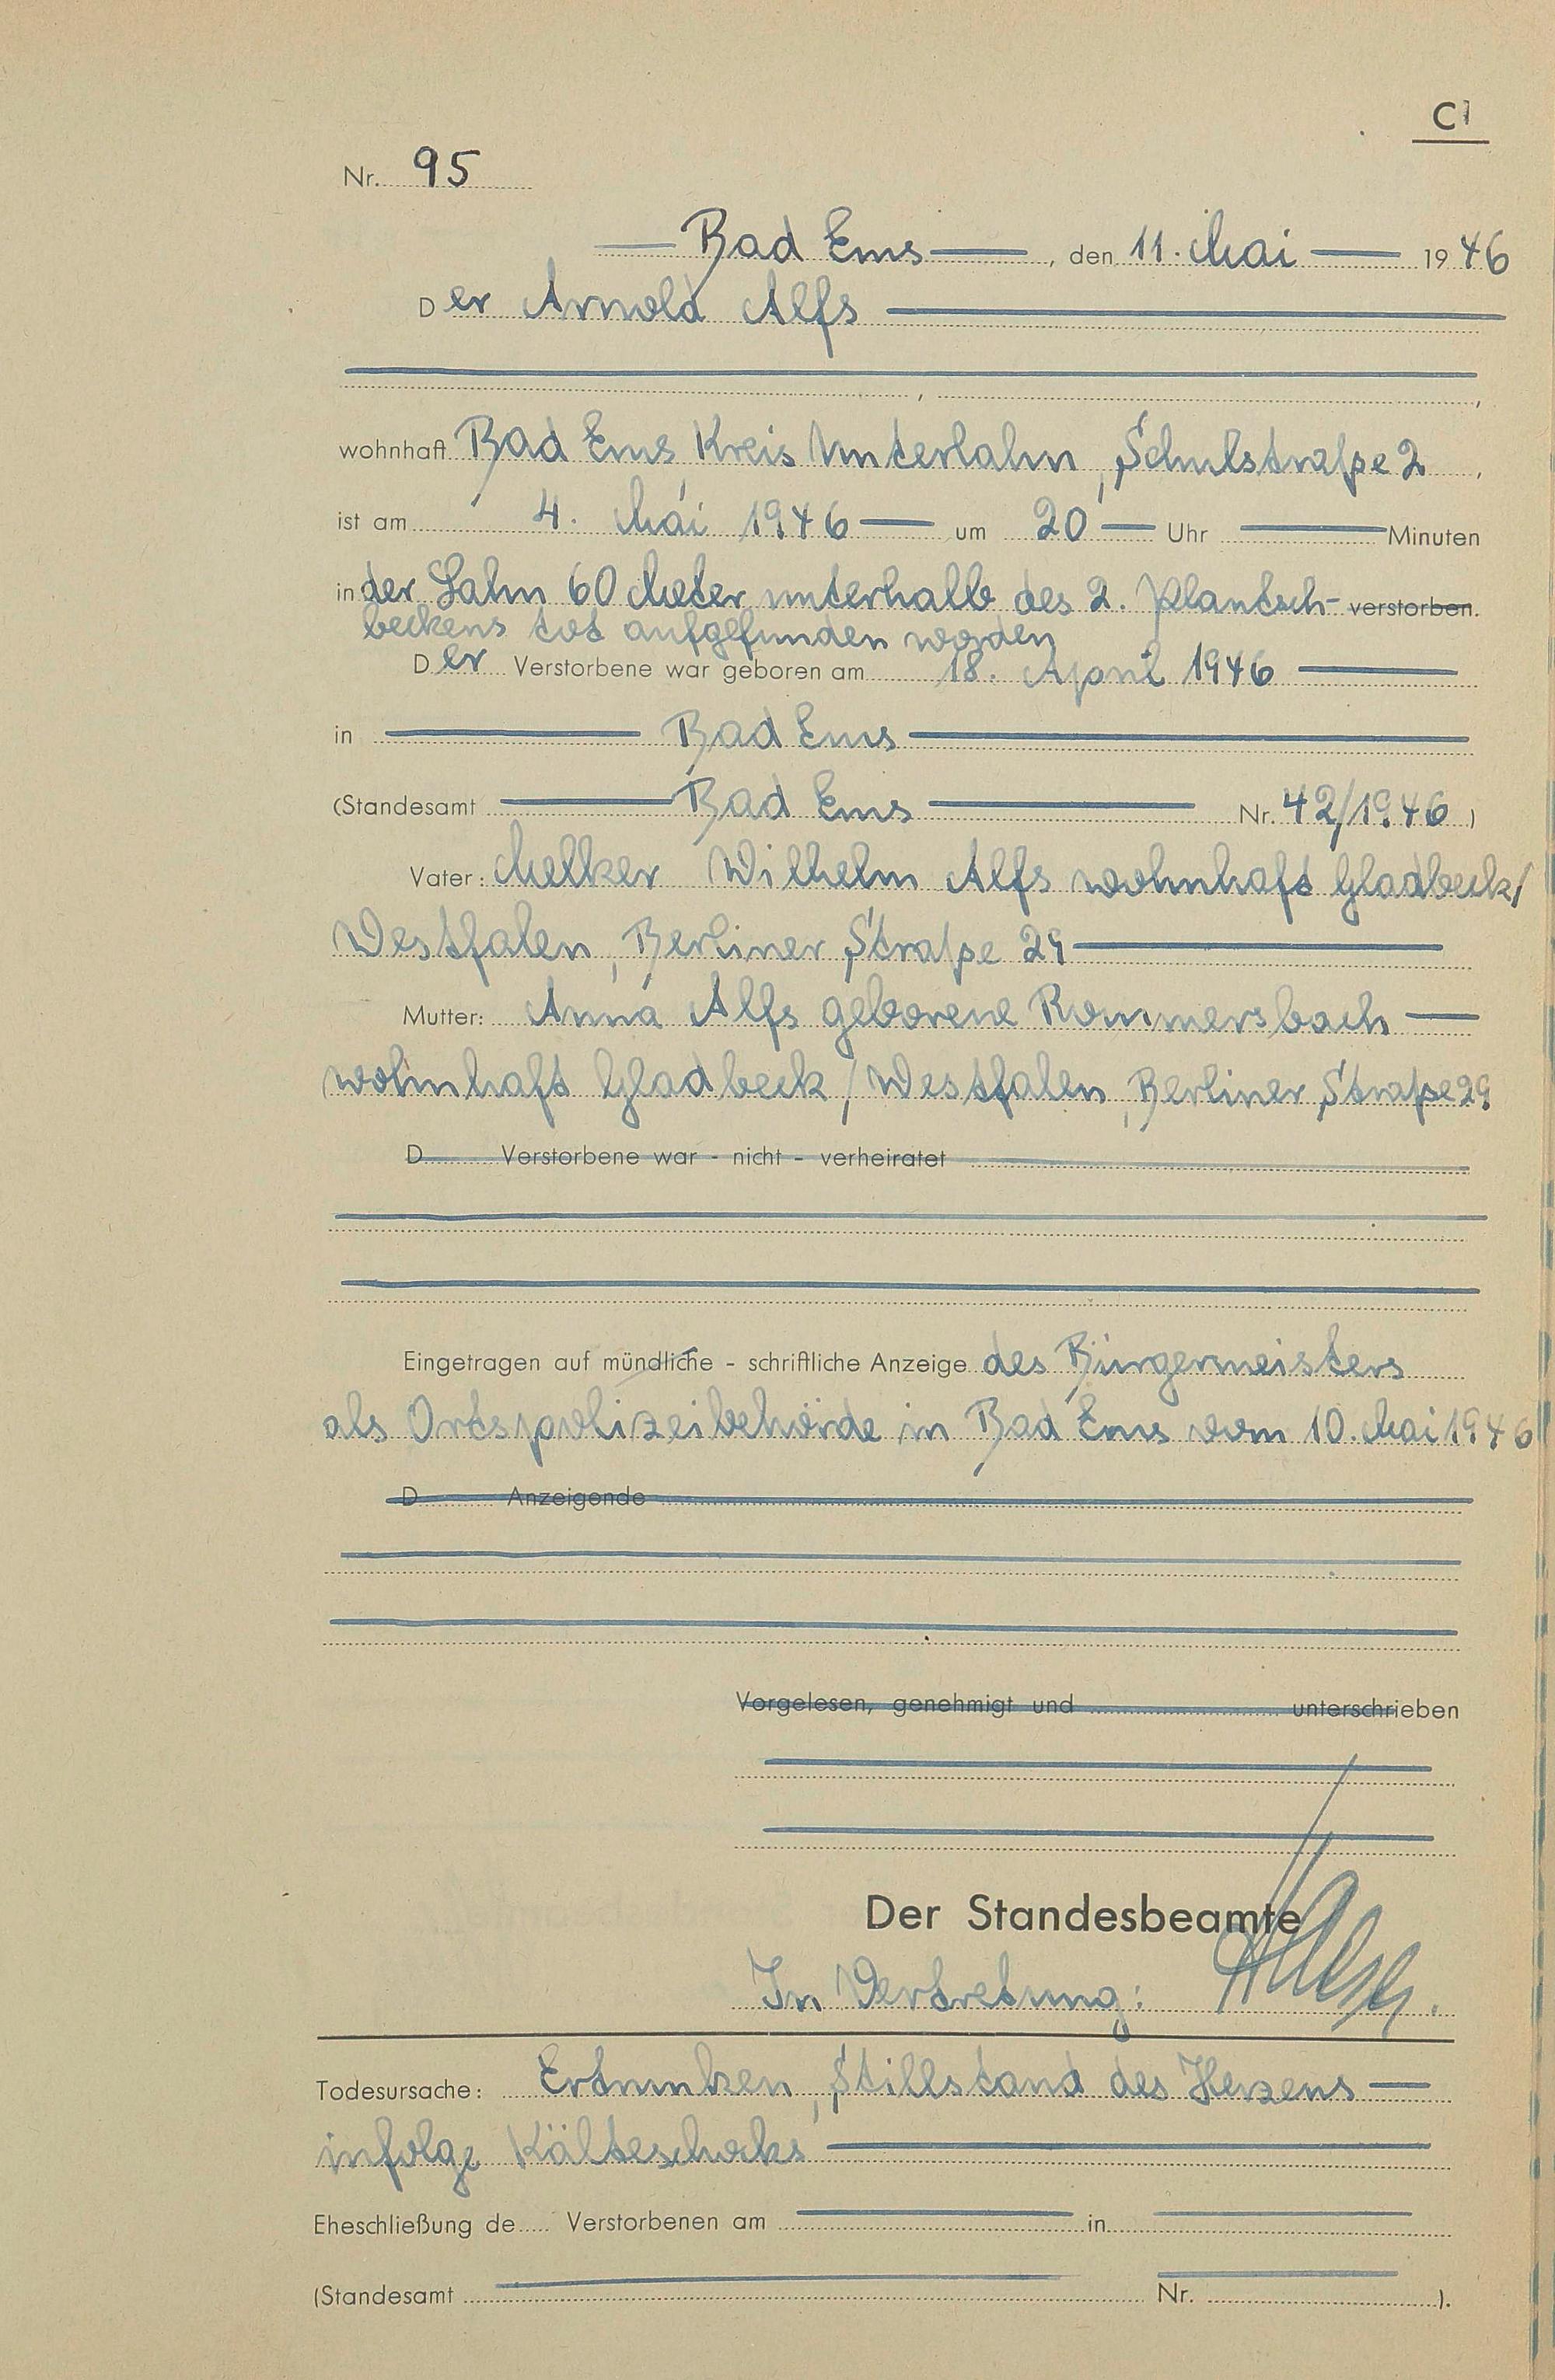 C1
Nr. 95
Bad Ems, den 11. Mai 1946
Der Arnold Alfs
wohnhaft Bad Ems, Kreis Unterlahn, Schulstraße 2,
ist am 4. Mai 1946 um 20 Uhr Minuten
in der Lahn 60 Meter unterhalb des 2. Plantsch- verstorben.
beckens tot aufgefunden worden
Der Verstorbene war geboren am 18. April 1946
in Bad Ems
(Standesamt Bad Ems Nr. 42/1946)
Vater: Melker Wilhelm Alfs wohnhaft Gladbeck/
Westfalen, Berliner Straße 29
Mutter: Anna Alfs geborene Rommersbach
wohnhaft Gladbeck/Westfalen, Berliner Straße 29
D Verstorbene war - nicht - verheiratet
Eingetragen auf mündliche - schriftliche Anzeige des Bürgermeisters
als Ortspolizeibehörde in Bad Ems vom 10. Mai 1946
D Anzeigende
Vorgelesen, genehmigt und unterschrieben
Der Standesbeamte
In Vertretung:
Todesursache: Ertrunken, Stillstand des Herzens
infolge Kälteschocks
Eheschließung de Verstorbenen am in
(Standesamt Nr. ).